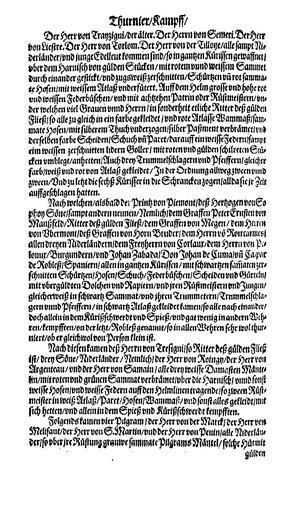 Thurnier/Kampff/
Der Herr von Tranzigui/der älter. Der Herrn von Semeri. Der Herr
von Liestre. Der Herr von Torlom. Der Herr von der Tilloye/alle sampt Ni-
derländer/und junge Edelleut kommen sind/so in gantzen Kürissen gewaffnet/
uber dem Harnisch von gülden Stücken/mit rotem und weissem Sammet
durch einander gestickt/und zugsweiß zerschnitten/Schürtzen von rot samma-
te Hosen/mit weissem Atlaß underfütert. Auff dem Helm grosse und hohe rot
und weissen Federbüschen/und mit achtzehen Patrin oder Rüstmeistern/un-
der welchen viel Grauen und Herrn/in sonderheit etliche Ritter deß gülden
Fließ/so alle zu gleich in ein farbe gekleidet/und rote Atlasse Wammaß/sam-
mate Hosen/mit silberem Thuch und ezogen/silber Paßment verbrämet/und
derselben farbe Scheiden/Schuch uñ Paret/darauff ein weisse Federn/sampt
eim weissen zerschnitten lidern Goller/mit roten und gülden schnüren Stü-
cken umblegt/anhetten/Auch drey Trummelschlagern und Pfeiffern/gleicher
farb/weiß und rot von Atlaß gekleidet/In der Ordnung allweg zween und
zween/Und zu letzt die sechß Kürisser in die Schrancken zogen/all da sie jr Zeit
auffgeschlagen hatten.
Nach welchen/alsbald der Printz von Piemont/deß Hertzogen von Sa-
phoy Söne/sampt andern neunen/Nemlich/dem Graffen Peter Ernsten von
Manßfeld/Ritter deß gülden Fließ/dem Graffen von Megen/dem Herrn
allen dreyen Niderländern/dem Freyherrn von Corlaus/dem Herrn von Pa-
lonus/Burgundern/und Johan Zabadas/Don Johan de Cuma/uñ Capar
de Robles/Spaniern/allen in gantzen Kürissen/mit schwartzen Sammaten zer-
schnitten Schürtzen/Hosen/Schuch/Federbüschen/Scheiden und Gürteln/
mit vergülten Dolchen und Rapiern/und jren Rüstmeistern und Jungen/
gleicherweiß in schwartz Sammat/und jhren Trummetern/Trummelschla-
gern unnd Pfeiffern/in schwartz Atlaß gekleidet kamen/so alle nach einander/
doch allein in dem Kürißschwerd und Spieß/und gar wenig in andern Weh-
ren/kempfften/on der letzt/Robleß genannt/so in allen Wehren sehr wol thur-
niert/ob er gleich wol von Person klein ist.
Nach diesen kamen deß Herrn von Tresigni/so Ritter deß gülden Fließ
ist/drey Söne/Niderländer/Nemlich/der Herr von Roingy/der Herr von
Argenteau/und der Herr von Samain/alle drey weisse Damasten Mänt-
lin/mit roten und grünen Sammat verbrämet/uber die Harnisch/unnd sonst
weisse Hosen/und weisse Federn auff den Helmlinen tragende/so zween Rüst-
meister in weiß Atlaß/Paret/Hosen/Wammaß/und sonst alles gekleidet/mit
sich hetten/und allein in dem Spieß und Kürißschwerdt kempfften.
Folgends kamen vier Pilgram/der Herr von der Marck/der Herr von
Melisant/der Herr von S. Martin/und der Herr von Peuin/alle Niderlän-
der/so uber jre Rüstung grauwe sammate Pilgrams Mäntel/solche Hüt mit
gülden